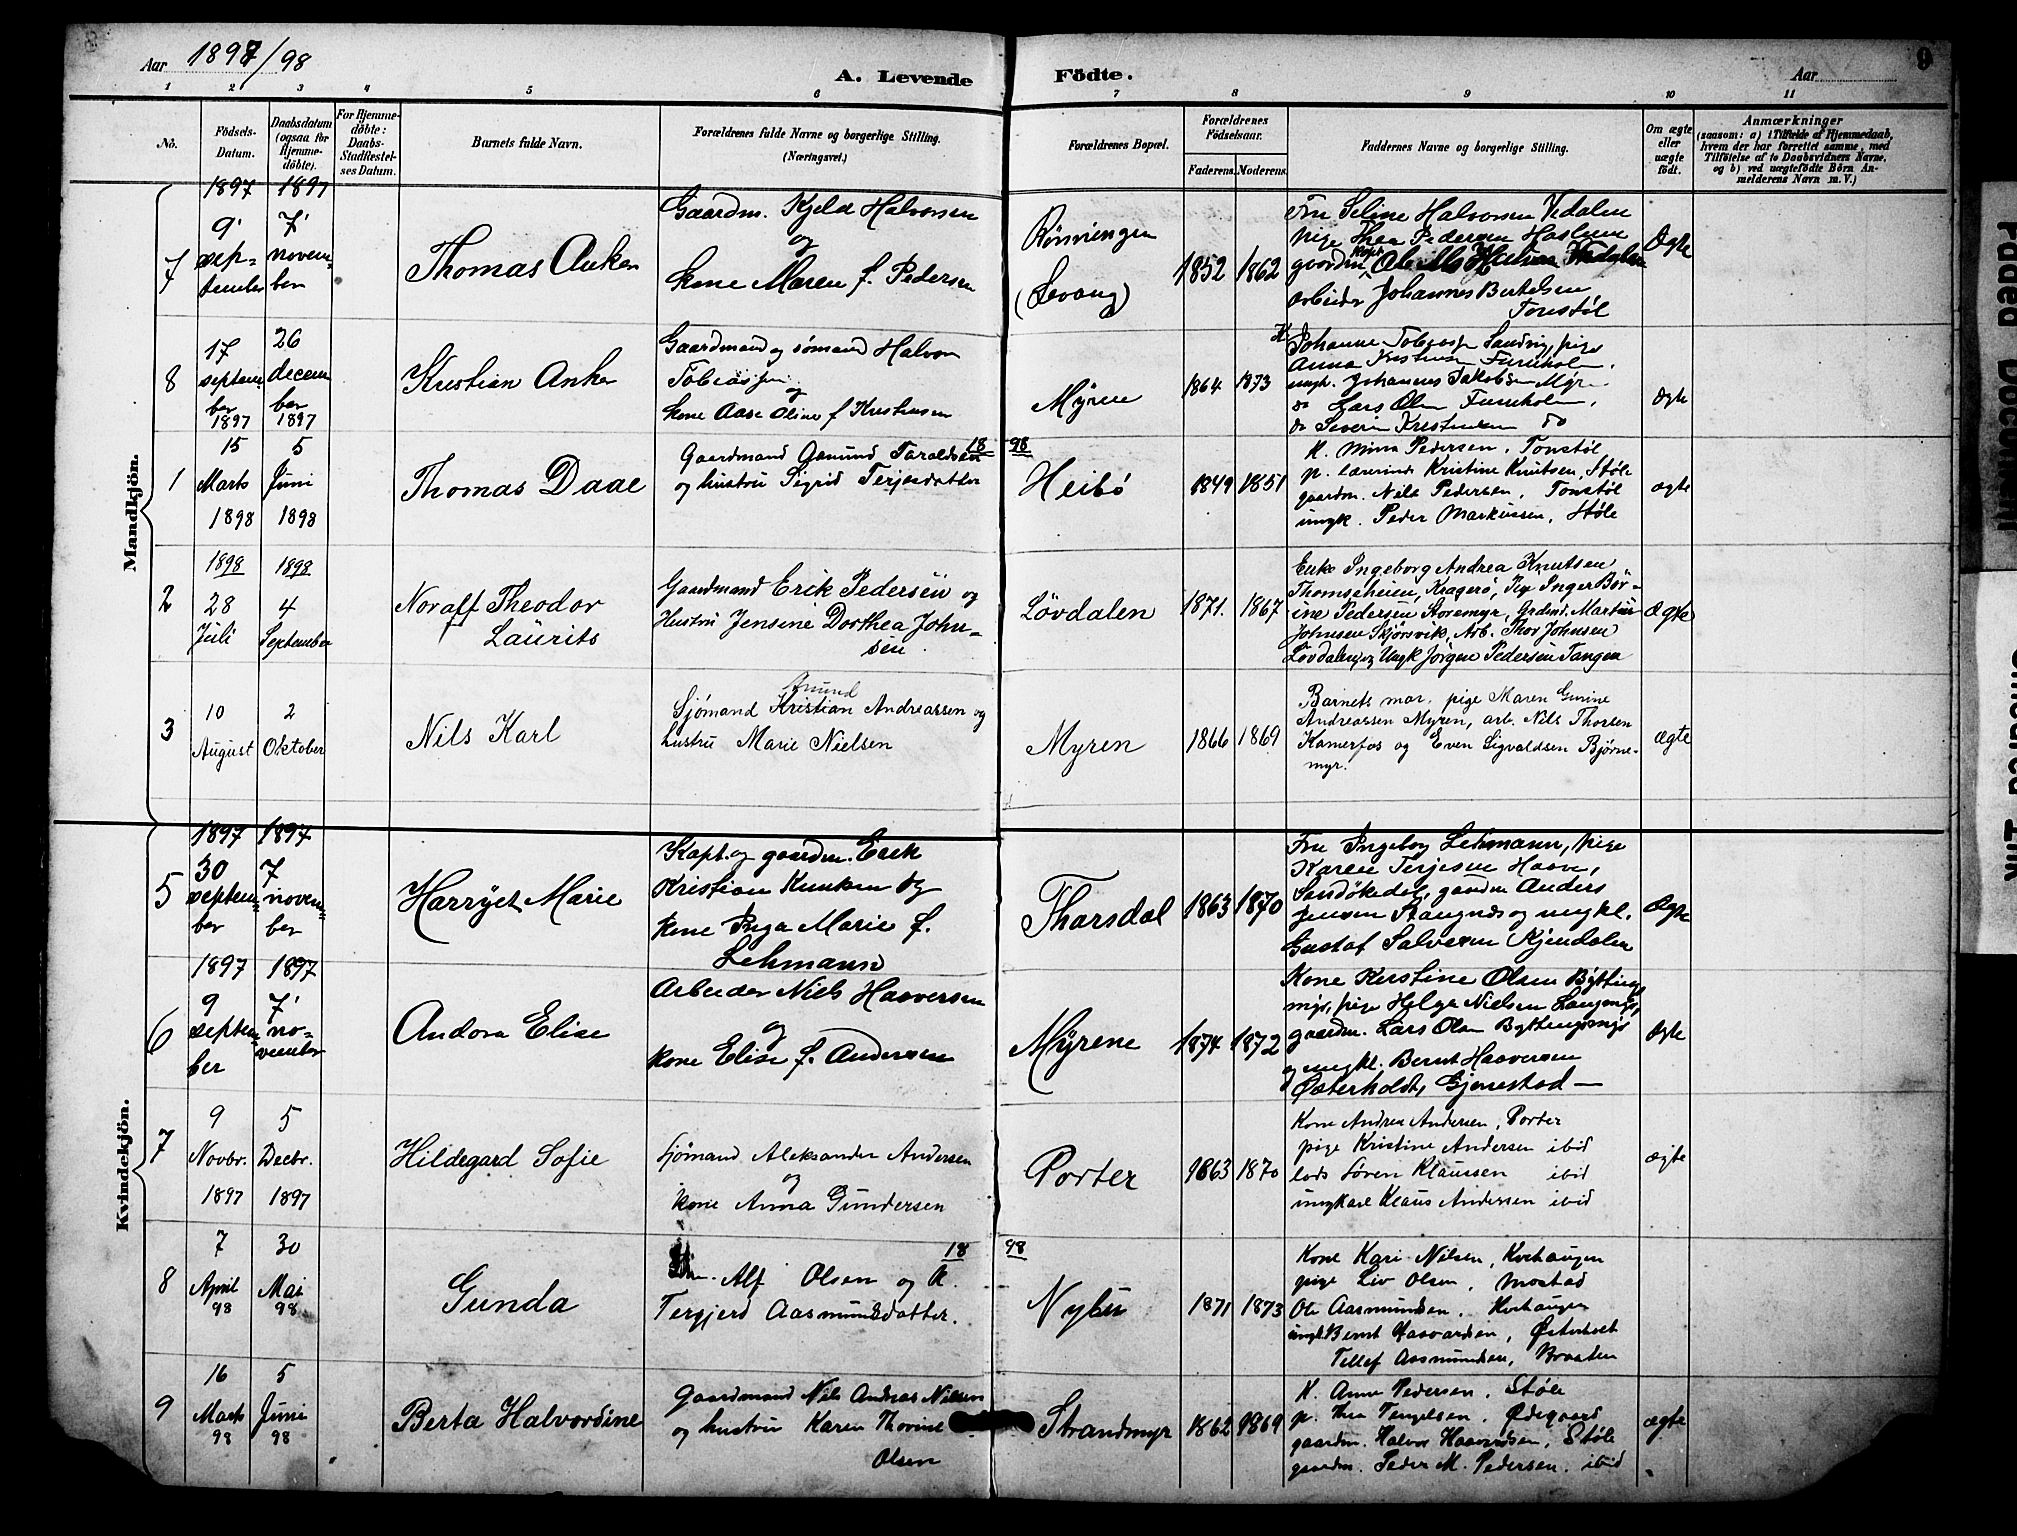 8
9
Aar 1897/98
A. Levende
Födte.
Aar
1 2 3 4 5 6 7 8 9 10 11
No.
Födsels-Datum.
Daabsdatum (ogsaa for Hjemmedöbte).
For Hjemmedöbte: Daabs-Stadfæstelses Datum.
Barnets fulde Navn.
Forældrenes fulde Navne og borgerlige Stilling.
(Næringsvei.)
Forældrenes Bopæl.
Forældrenes Födselsaar.
Faderens. Moderens.
Faddernes Navne og borgerlige Stilling.
Om ægte eller uægte födt.
Anmærkninger
(saasom: a) i Tilfælde af Hjemmedaab,
hvem der har forrettet samme, med
Tilföielse af to Daabsvidners Navne,
og b) ved uægtefödte Börn An-
melderens Navn m. V.)
Mandkjön.
7
1897
9'
sep-
tember
1897
7'
novem-
ber
Thomas Anker
Gaardm. Kjeld Halvorsen
og
kone Maren f. Pedersen
(Levang)
1852
1862
Fru Seline Halvorsen Vedalen
pige Thea Pedersen
arbeider Johannes Bertelsen
Tonstøl
Ægte
8
17
septem
ber
1897
26
decem
ber
1897
Kristian Anker
Gaardmand og sømand Halvor
Tobiassen
og
kone Aase Oline f Kristensen
Myrene
1864
1873
Johanne Tobiassen Sandvig, pige
Anna Kristensen Furuholm.
ungk. Johannes Jakobsen Myr
do Lars Olsen Furuholm.
do Severin Kristensen do
Ægte
1
15
Marts
1898
5
Juni
1898
Thomas Daae
18 98
Gaardmand Asmund Taraldsen
og hustru Sigrid Terjesdatter
Heibø
1849
1851
K. Mina Pedersen, Tonstøl
p. lærerinde Kristine Knutsen, Støle
gaardm. Nils Pedersen, Tonstøl
ungk. Peder Markussen, Støle
ægte
2
1898
28
Juli
1898
4
September
Noralf Theodor
Laurits
Gaardmand Erik Pedersen og
Hustru Jensine Dorthea John-
sen.
Løvdalen
1871.
1867
Enke Ingeborg Andrea Knutsen
Thomseheien, Kragerø, Pig Inger Bør-
ine Pedersen Storemyr, Grdmd. Martin
Johnsen Skjørsvik, Arb. Thor Johnsen
Løvdalen og Ungk Jørgen Pedersen Tangen
Ægte
3
10
August
2
Oktober
Nils Karl
Amund
Sjømand Kristian Andreassen og
hustru Marie Nielsen
Myren
1866
1869
Barnets mor. pige Maren Gurine
Andreassen Myren, arb. Nils Thorsen
Kamerfos og Even Sigvaldsen Bjørne-
myr.
ægte
Kvindekjön.
5
1897
30
septem-
ber
1897
7
novem-
ber
Harryet Marie
Kapt. og gaardm. Erik
Kristian Knutsen og
kone Inga Marie f.
Lehmann
Tharsdal
1863
1870
Fru Ingeborg Lehmann, pige
Karen Terjesen Haave,
Sandøkedal, gaardm Anders
Jensen Stangnæs og ungkl.
Gustaf Salvesen Kjendalen
Ægte
6
1897
9
septem-
ber
1897
7'
no-
vember
Andora Elise
Arbeider Niels Haaversen
og
kone Elise f. Andersen
Myrene
1874
1872
Kone Kerstine Olsen Byttings
myr, pige Helga Nielsen
gaardm. Lars Olsen Byttingsmyr
og ungkl. Bernt Haaversen
Østerholdt, Gjerrestad —
Ægte
7
9
Novbr.
1897
5
Decbr.
1897
Hildegard Sofie
Sjømand Aleksander Andersen
og
kone Anna Gundersen
Porter
1863
1870
Kone Andrea Andersen, Porter
pige Kristine Andersen ibid
lods Søren Klaussen ibid
ungkarl Klaus Andersen ibid
ægte
8
7
April
98
30
Mai
98
Gunda
18 98
Alf Olsen og K.
Tergjerd Aasmundsdatter.
Nybu
1871
1873
Kone Kari Nilsen, Kvehaugen
pige Liv Olsen, Mostad
Ole Aasmundsen, Kvehaugen
ungk Bernt Haavardsen, Østerholt
Tellef Aasmundsen, Braaten
9
16
Marts
98
5
Juni
98
Berta Halvordine
Gaardmand Nils Andreas Nielsen
og hustru Karen Thorine
Olsen
Strandmyr
1862
1869
K. Anne Pedersen, Støle
p. Thea Tengelsen, Ødegaard
gaardm. Halvor Haavordsen, Støle
gaardm. Peder M. Pedersen, ibid
ægte